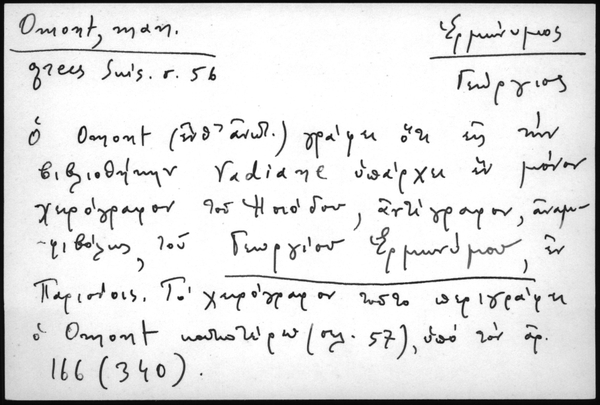 Omont, man.
grecs Suis. σ. 56
Ἑρμώνυμος
Γεώργιος
Ὁ Omont (ἔνθ' ἀνωτ.) γράφει ὅτι εἰς τὴν
βιβλιοθήκην Vadiane ὑπάρχει ἓν μόνον
χειρόγραφον τοῦ Ἡσιόδου, ἀντίγραφον, ἀναμ-
φιβόλως, τοῦ Γεωργίου Ἑρμωνύμου, ἐν
Παρισίοις. Τὸ χειρόγραφον τοῦτο περιγράφει
ὁ Omont κατωτέρω (σελ. 57), ὑπὸ τὸν ἀρ.
166 (340).